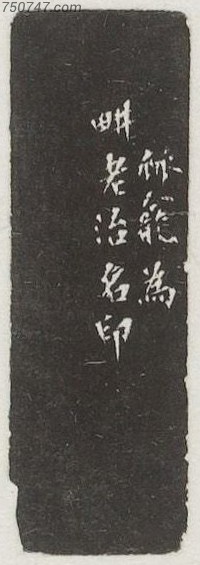 750747.com
龕為
畊老治名印